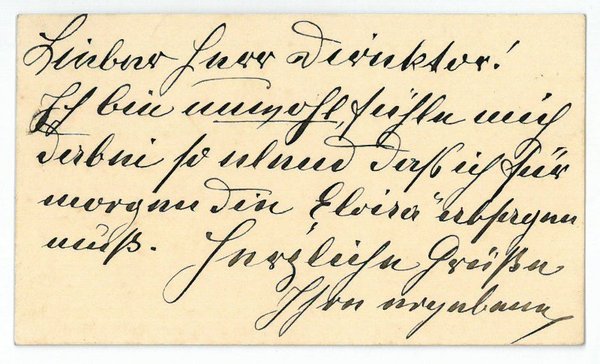 Lieber Herr Direktor!
Ich bin unwohl, fühle mich
dabei so elend daß ich für
morgen die „Eloisa“ absagen
muß. Herzliche Grüße
Ihre ergebene